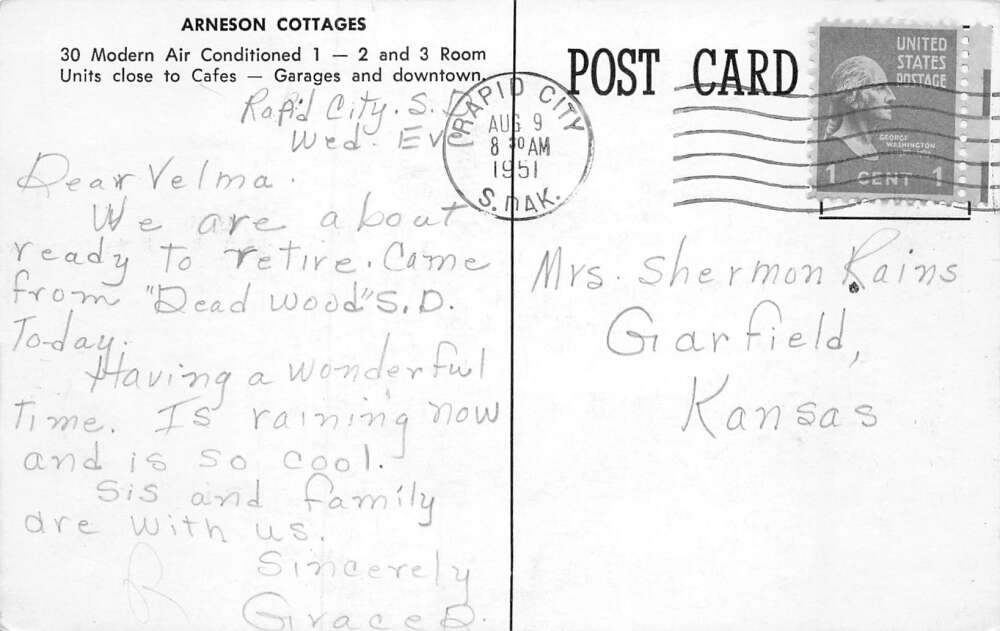 ARNESON COTTAGES
30 Modern Air Conditioned 1 — 2 and 3 Room
Units close to Cafes — Garages and downtown.
Rapid City. S. D.
Wed. Ev
Dear Velma.
We are about
ready to retire. Came
from "Dead Wood" S.D.
Today.
Having a wonderful
time. Is raining now
and is so cool.
Sis and family
are with us.
Sincerely
Grace D.
POST CARD
RAPID CITY
AUG 9
8 30 AM
1951
S. DAK.
UNITED
STATES
POSTAGE
GEORGE
WASHINGTON
1 CENT 1
Mrs. Shermon Rains
Garfield,
Kansas